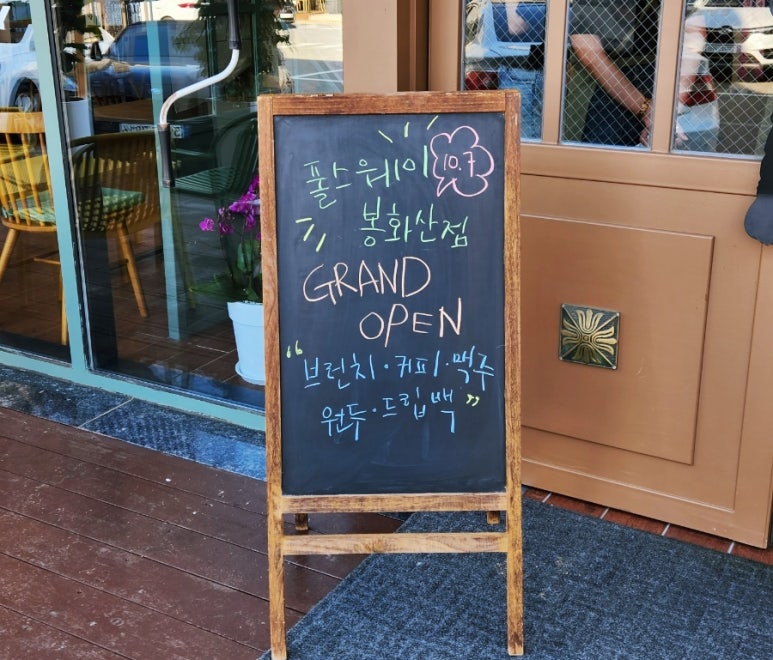 풀스웨이 10.7
봉화산점
GRAND
OPEN
“브런치·커피·맥주
원두·드립백”